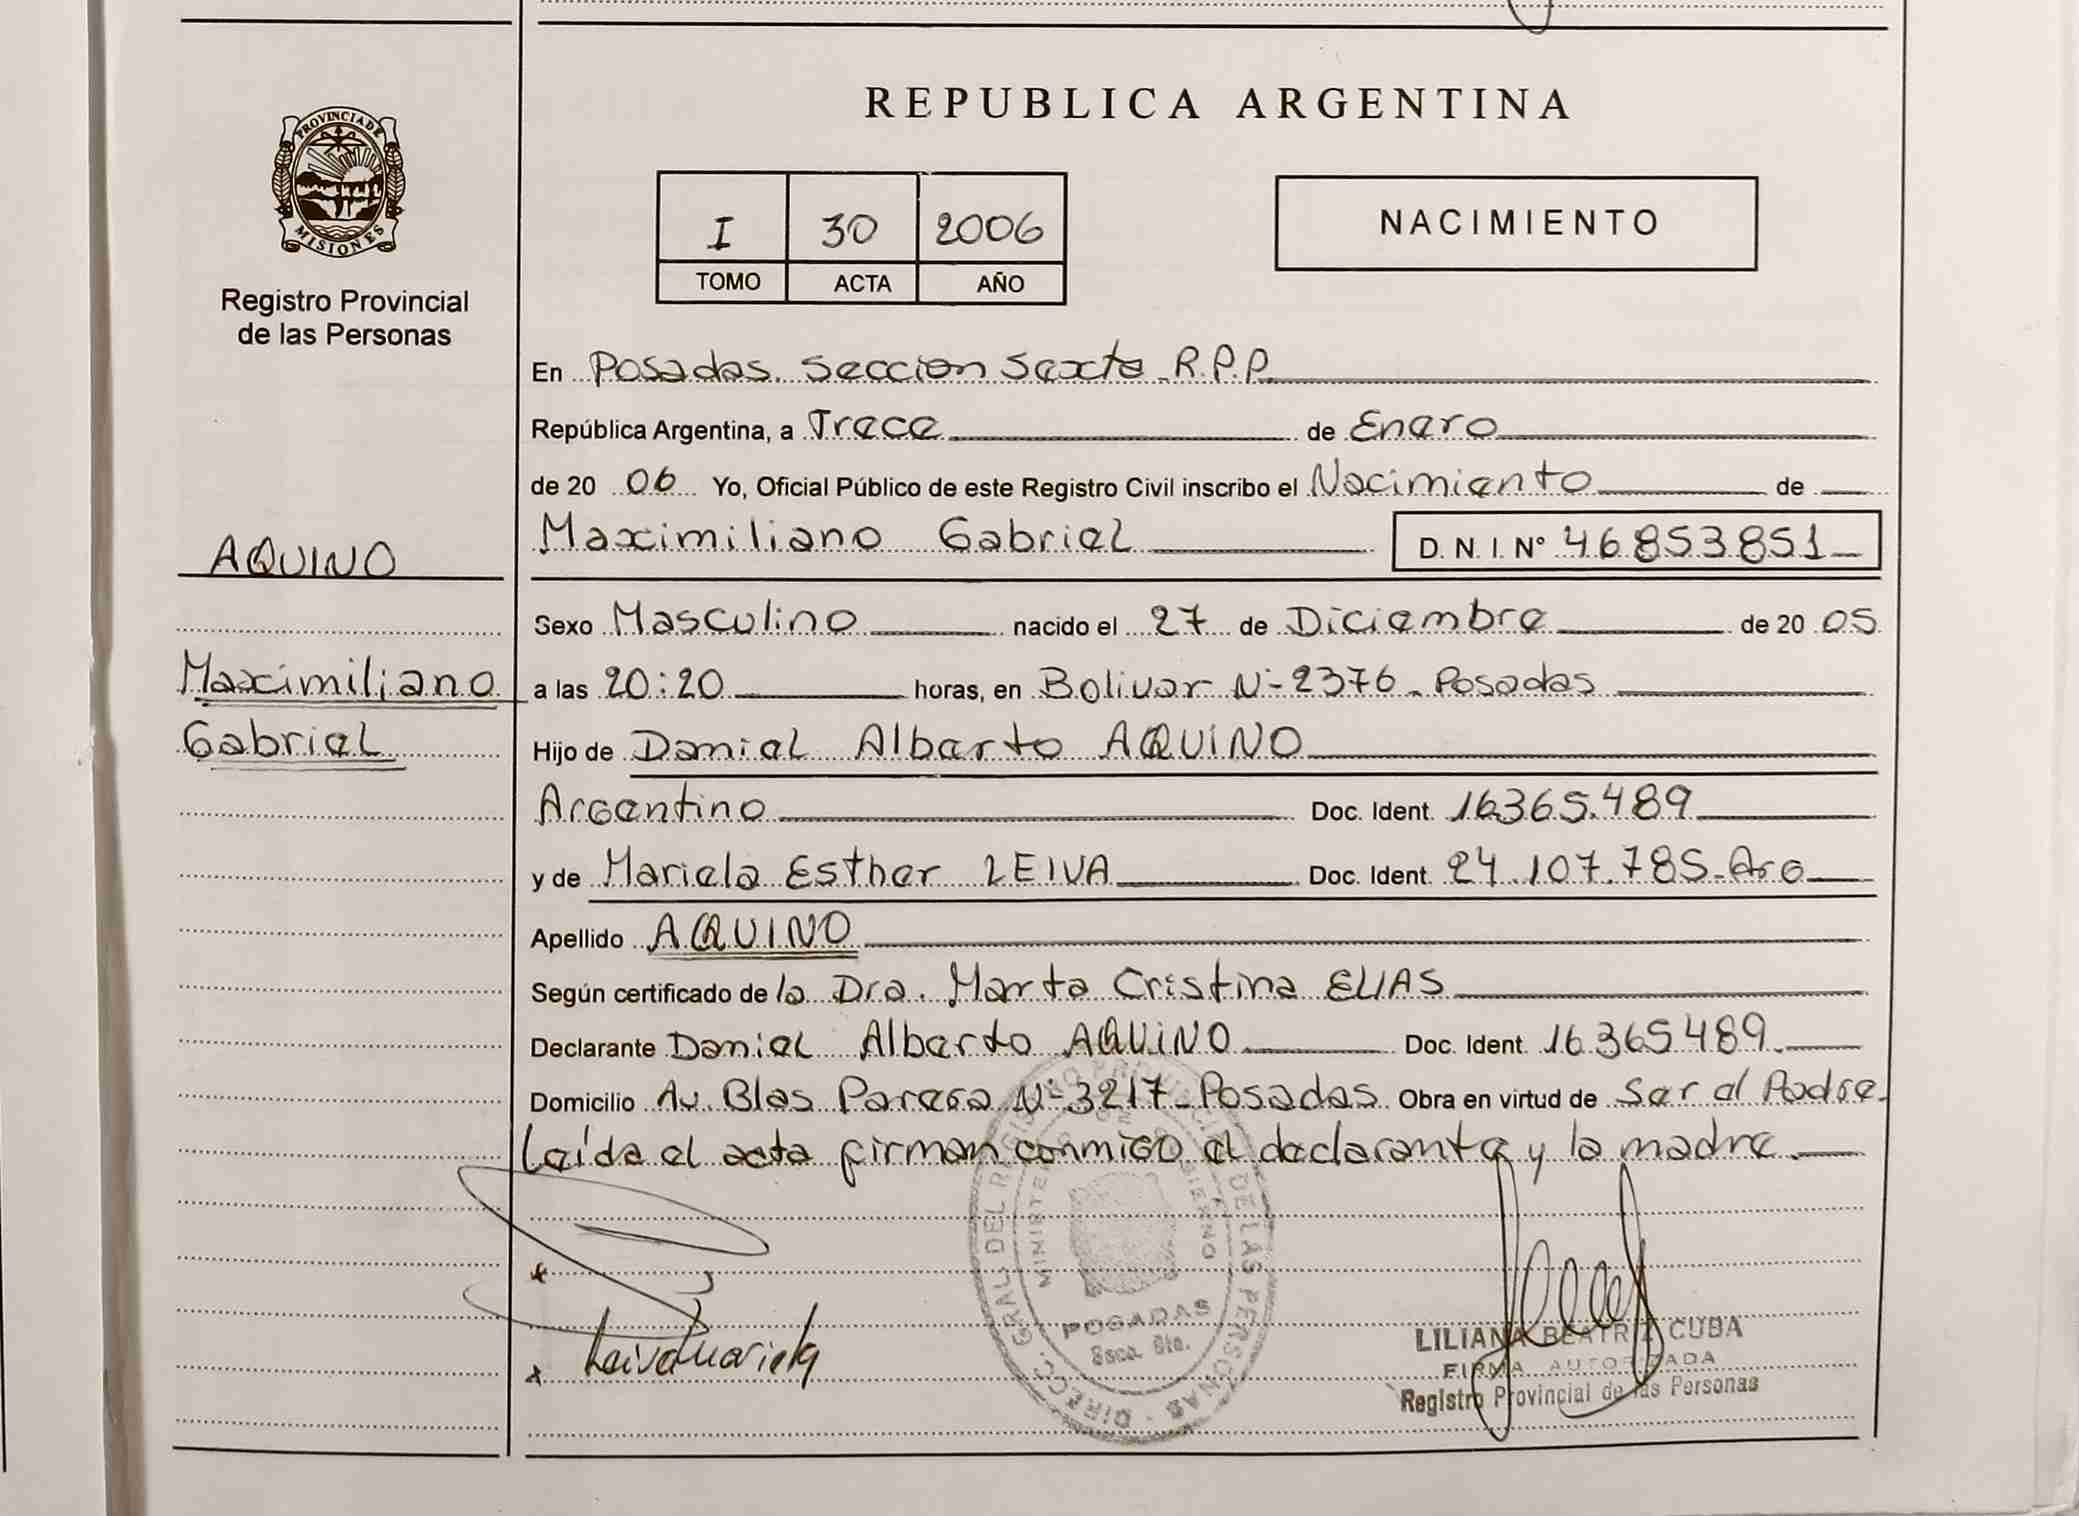 REPUBLICA ARGENTINA
PROVINCIA DE MISIONES
Registro Provincial
de las Personas
I 30 2006
TOMO ACTA AÑO
NACIMIENTO
En Posadas. Seccion Sexta R.P.P.
República Argentina, a Trece de Enero
de 20 06 Yo, Oficial Público de este Registro Civil inscribo el Nacimiento de
Maximiliano Gabriel D. N. I. Nº 46853851
AQUINO
Maximiliano
Gabriel
Sexo Masculino nacido el 27 de Diciembre de 20 05
a las 20:20 horas, en Bolivar Nº 2376 - Posadas
Hijo de Daniel Alberto AQUINO
Argentino Doc. Ident. 16.365.489
y de Mariela Esther LEIVA Doc. Ident. 24.107.785-Arg
Apellido AQUINO
Según certificado de la Dra. Marta Cristina ELIAS
Declarante Daniel Alberto AQUINO Doc. Ident. 16 365 489.
Domicilio Av. Blas Parera Nº 3217 - Posadas Obra en virtud de Ser el Padre.
Leída el acta firman conmigo el declarante y la madre.
DIRECC. GRAL. DEL REGISTRO PROVINCIAL DE LAS PERSONAS
MINISTERIO DE GOBIERNO
POSADAS
Secc. 6ta.
x
x Leiva Mariela
LILIANA BEATRIZ CUBA
FIRMA AUTORIZADA
Registro Provincial de las Personas